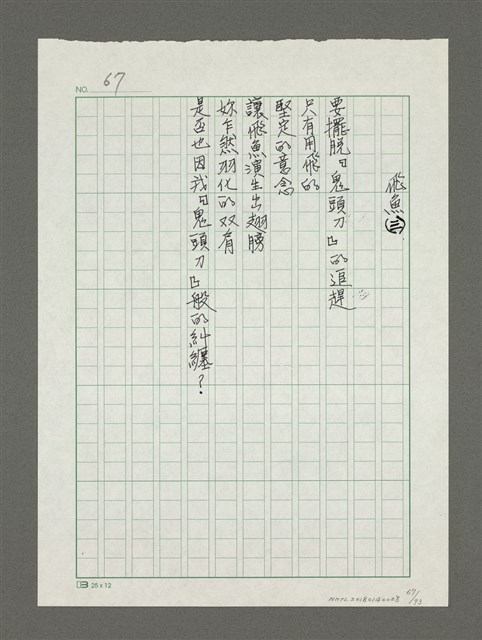 NO. 67
飛魚(三)
要擺脫「鬼頭刀」的追趕
只有用飛的
堅定的意念
讓飛魚演生出翅膀
妳乍然羽化的双肩
是否也因我「鬼頭刀」般的糾纏？
25 x 12
67/93